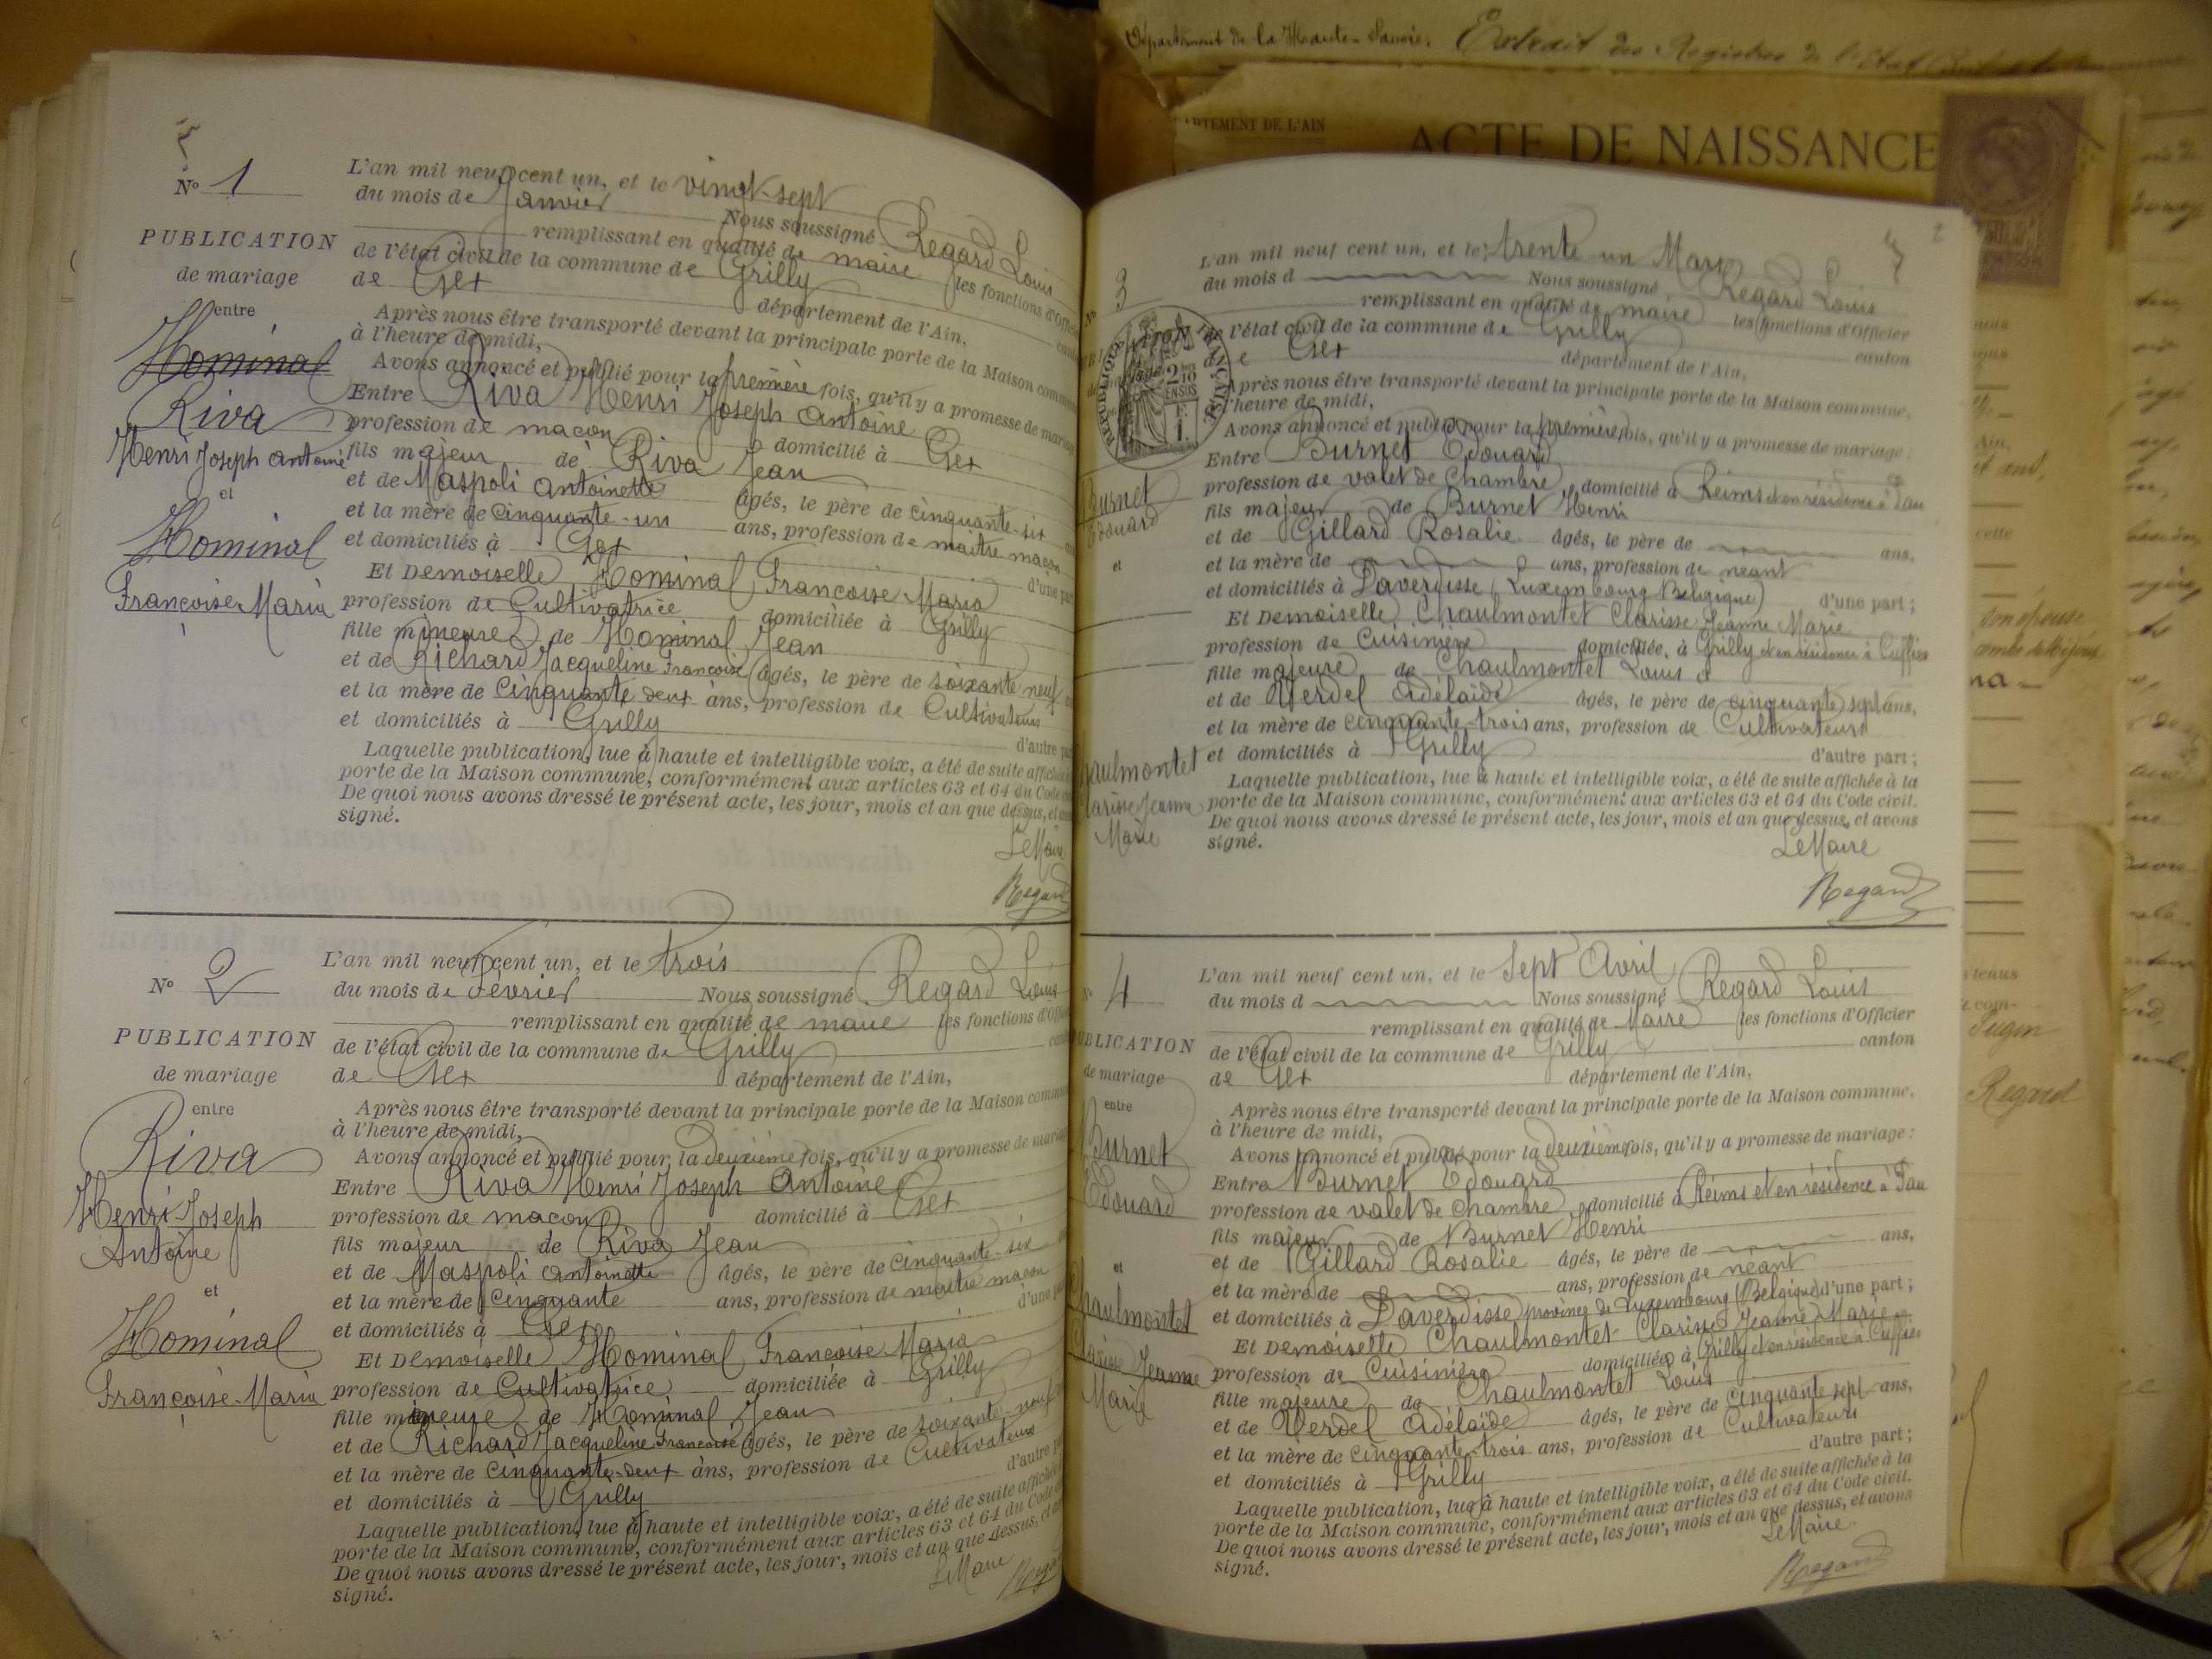 Département de la Haute-Savoie. Extrait des Registres de l'État
ACTE DE NAISSANCE
N° 1
PUBLICATION
de mariage
entre
Hominal
Riva
Henri Joseph Antoine
et
Hominal
Françoise-Maria
L'an mil neuf cent un, et le vingt-sept
du mois de Janvier Nous soussigné Regard Louis
remplissant en qualité de maire les fonctions d'Offi
de l'état civil de la commune de Grilly
de Gex département de l'Ain,
Après nous être transporté devant la principale porte de la Maison commu
à l'heure de midi,
Avons annoncé et publié pour la première fois, qu'il y a promesse de maria
Entre Riva Henri Joseph Antoine
profession de maçon domicilié à Gex
fils majeur de Riva Jean
et de Maspoli Antoinette âgés, le père de cinquante-six
et la mère de cinquante-un ans, profession de maître maçon
et domiciliés à Gex d'une par
Et Demoiselle Hominal Françoise-Maria
profession de Cultivatrice domiciliée à Grilly
fille mineure de Hominal Jean
et de Richard Jacqueline Françoise âgés, le père de soixante neuf
et la mère de cinquante deux ans, profession de Cultivateurs
et domiciliés à Grilly d'autre pa
Laquelle publication, lue à haute et intelligible voix, a été de suite affichée
porte de la Maison commune, conformément aux articles 63 et 64 du Code
De quoi nous avons dressé le présent acte, les jour, mois et an que dessus, et
signé.
Le Maire
Regard
N° 2
PUBLICATION
de mariage
entre
Riva
Henri Joseph
Antoine
et
Hominal
Françoise-Maria
L'an mil neuf cent un, et le trois
du mois de Février Nous soussigné Regard Louis
remplissant en qualité de maire les fonctions d'Offi
de l'état civil de la commune de Grilly
de Gex département de l'Ain,
Après nous être transporté devant la principale porte de la Maison commu
à l'heure de midi,
Avons annoncé et publié pour la deuxième fois, qu'il y a promesse de maria
Entre Riva Henri Joseph Antoine
profession de maçon domicilié à Gex
fils majeur de Riva Jean
et de Maspoli Antoinette âgés, le père de cinquante-six
et la mère de cinquante ans, profession de maître maçon
et domiciliés à Gex d'une pa
Et Demoiselle Hominal Françoise-Maria
profession de Cultivatrice domiciliée à Grilly
fille mineure de Hominal Jean
et de Richard Jacqueline Françoise âgés, le père de soixante-neuf
et la mère de cinquante-deux ans, profession de Cultivateurs
et domiciliés à Grilly d'autre
Laquelle publication, lue à haute et intelligible voix, a été de suite affichée
porte de la Maison commune, conformément aux articles 63 et 64 du Code
De quoi nous avons dressé le présent acte, les jour, mois et an que dessus, et
signé.
Le Maire
Regard
2
N° 3
RÉPUBLIQUE FRANÇAISE
Burnet
Edouard
et
Chaulmontet
Clarisse Jeanne
Marie
L'an mil neuf cent un, et le trente-un Mars
du mois d Nous soussigné Regard Louis
remplissant en qualité de maire les fonctions d'Officier
de l'état civil de la commune de Grilly canton
de Gex département de l'Ain,
Après nous être transporté devant la principale porte de la Maison commune,
à l'heure de midi,
Avons annoncé et publié pour la première fois, qu'il y a promesse de mariage :
Entre Burnet Edouard
profession de valet de Chambre, domicilié à Reims et en résidence à Pau
fils majeur de Burnet Henri
et de Gillard Rosalie âgés, le père de ans,
et la mère de ans, profession de néant
et domiciliés à Daverdisse (Luxembourg Belgique) d'une part ;
Et Demoiselle Chaulmontet Clarisse Jeanne Marie
profession de Cuisinière domiciliée, à Grilly et en résidence à Cuffies
fille majeure de Chaulmontet Louis
et de Verdel Adélaïde âgés, le père de cinquante sept ans,
et la mère de cinquante-trois ans, profession de Cultivateurs
et domiciliés à Grilly d'autre part ;
Laquelle publication, lue à haute et intelligible voix, a été de suite affichée à la
porte de la Maison commune, conformément aux articles 63 et 64 du Code civil.
De quoi nous avons dressé le présent acte, les jour, mois et an que dessus, et avons
signé.
Le Maire
Regard
N° 4
PUBLICATION
de mariage
entre
Burnet
Edouard
et
Chaulmontet
Clarisse Jeanne
Marie
L'an mil neuf cent un, et le Sept Avril
du mois d Nous soussigné Regard Louis
remplissant en qualité de Maire les fonctions d'Officier
de l'état civil de la commune de Grilly canton
de Gex département de l'Ain,
Après nous être transporté devant la principale porte de la Maison commune,
à l'heure de midi,
Avons annoncé et publié pour la deuxième fois, qu'il y a promesse de mariage :
Entre Burnet Edouard
profession de valet de Chambre, domicilié à Reims et en résidence à Pau
fils majeur de Burnet Henri
et de Gillard Rosalie âgés, le père de ans,
et la mère de ans, profession de néant
et domiciliés à Daverdisse province de Luxembourg (Belgique) d'une part ;
Et Demoiselle Chaulmontet Clarisse Jeanne Marie
profession de Cuisinière domiciliée à Grilly et en résidence à Cuffies
fille majeure de Chaulmontet Louis
et de Verdel Adélaïde âgés, le père de cinquante sept ans,
et la mère de cinquante-trois ans, profession de Cultivateurs
et domiciliés à Grilly d'autre part ;
Laquelle publication, lue à haute et intelligible voix, a été de suite affichée à la
porte de la Maison commune, conformément aux articles 63 et 64 du Code civil.
De quoi nous avons dressé le présent acte, les jour, mois et an que dessus, et avons
signé.
Le Maire
Regard
Regard